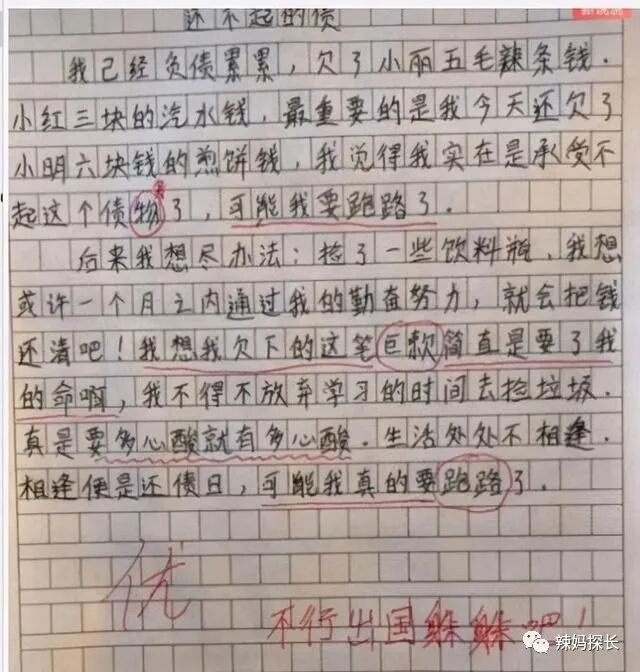 还不起的债
我已经负债累累，欠了小丽五毛辣条钱.
小红三块的汽水钱，最重要的是我今天还欠了
小明六块钱的煎饼钱，我觉得我实在是承受不
起这个债物了，可能我要跑路了.
后来我想尽办法：捡了一些饮料瓶、我想
或许一个月之内通过我的勤奋努力，就会把钱
还清吧！我想我欠下的这笔巨款简直是要了我
的命啊，我不得不放弃学习的时间去捡垃圾.
真是要多心酸就有多心酸.生活处处不相逢.
相逢便是还债日，可能我真的要跑路了.
优
不行出国躲躲吧！
辣妈探长